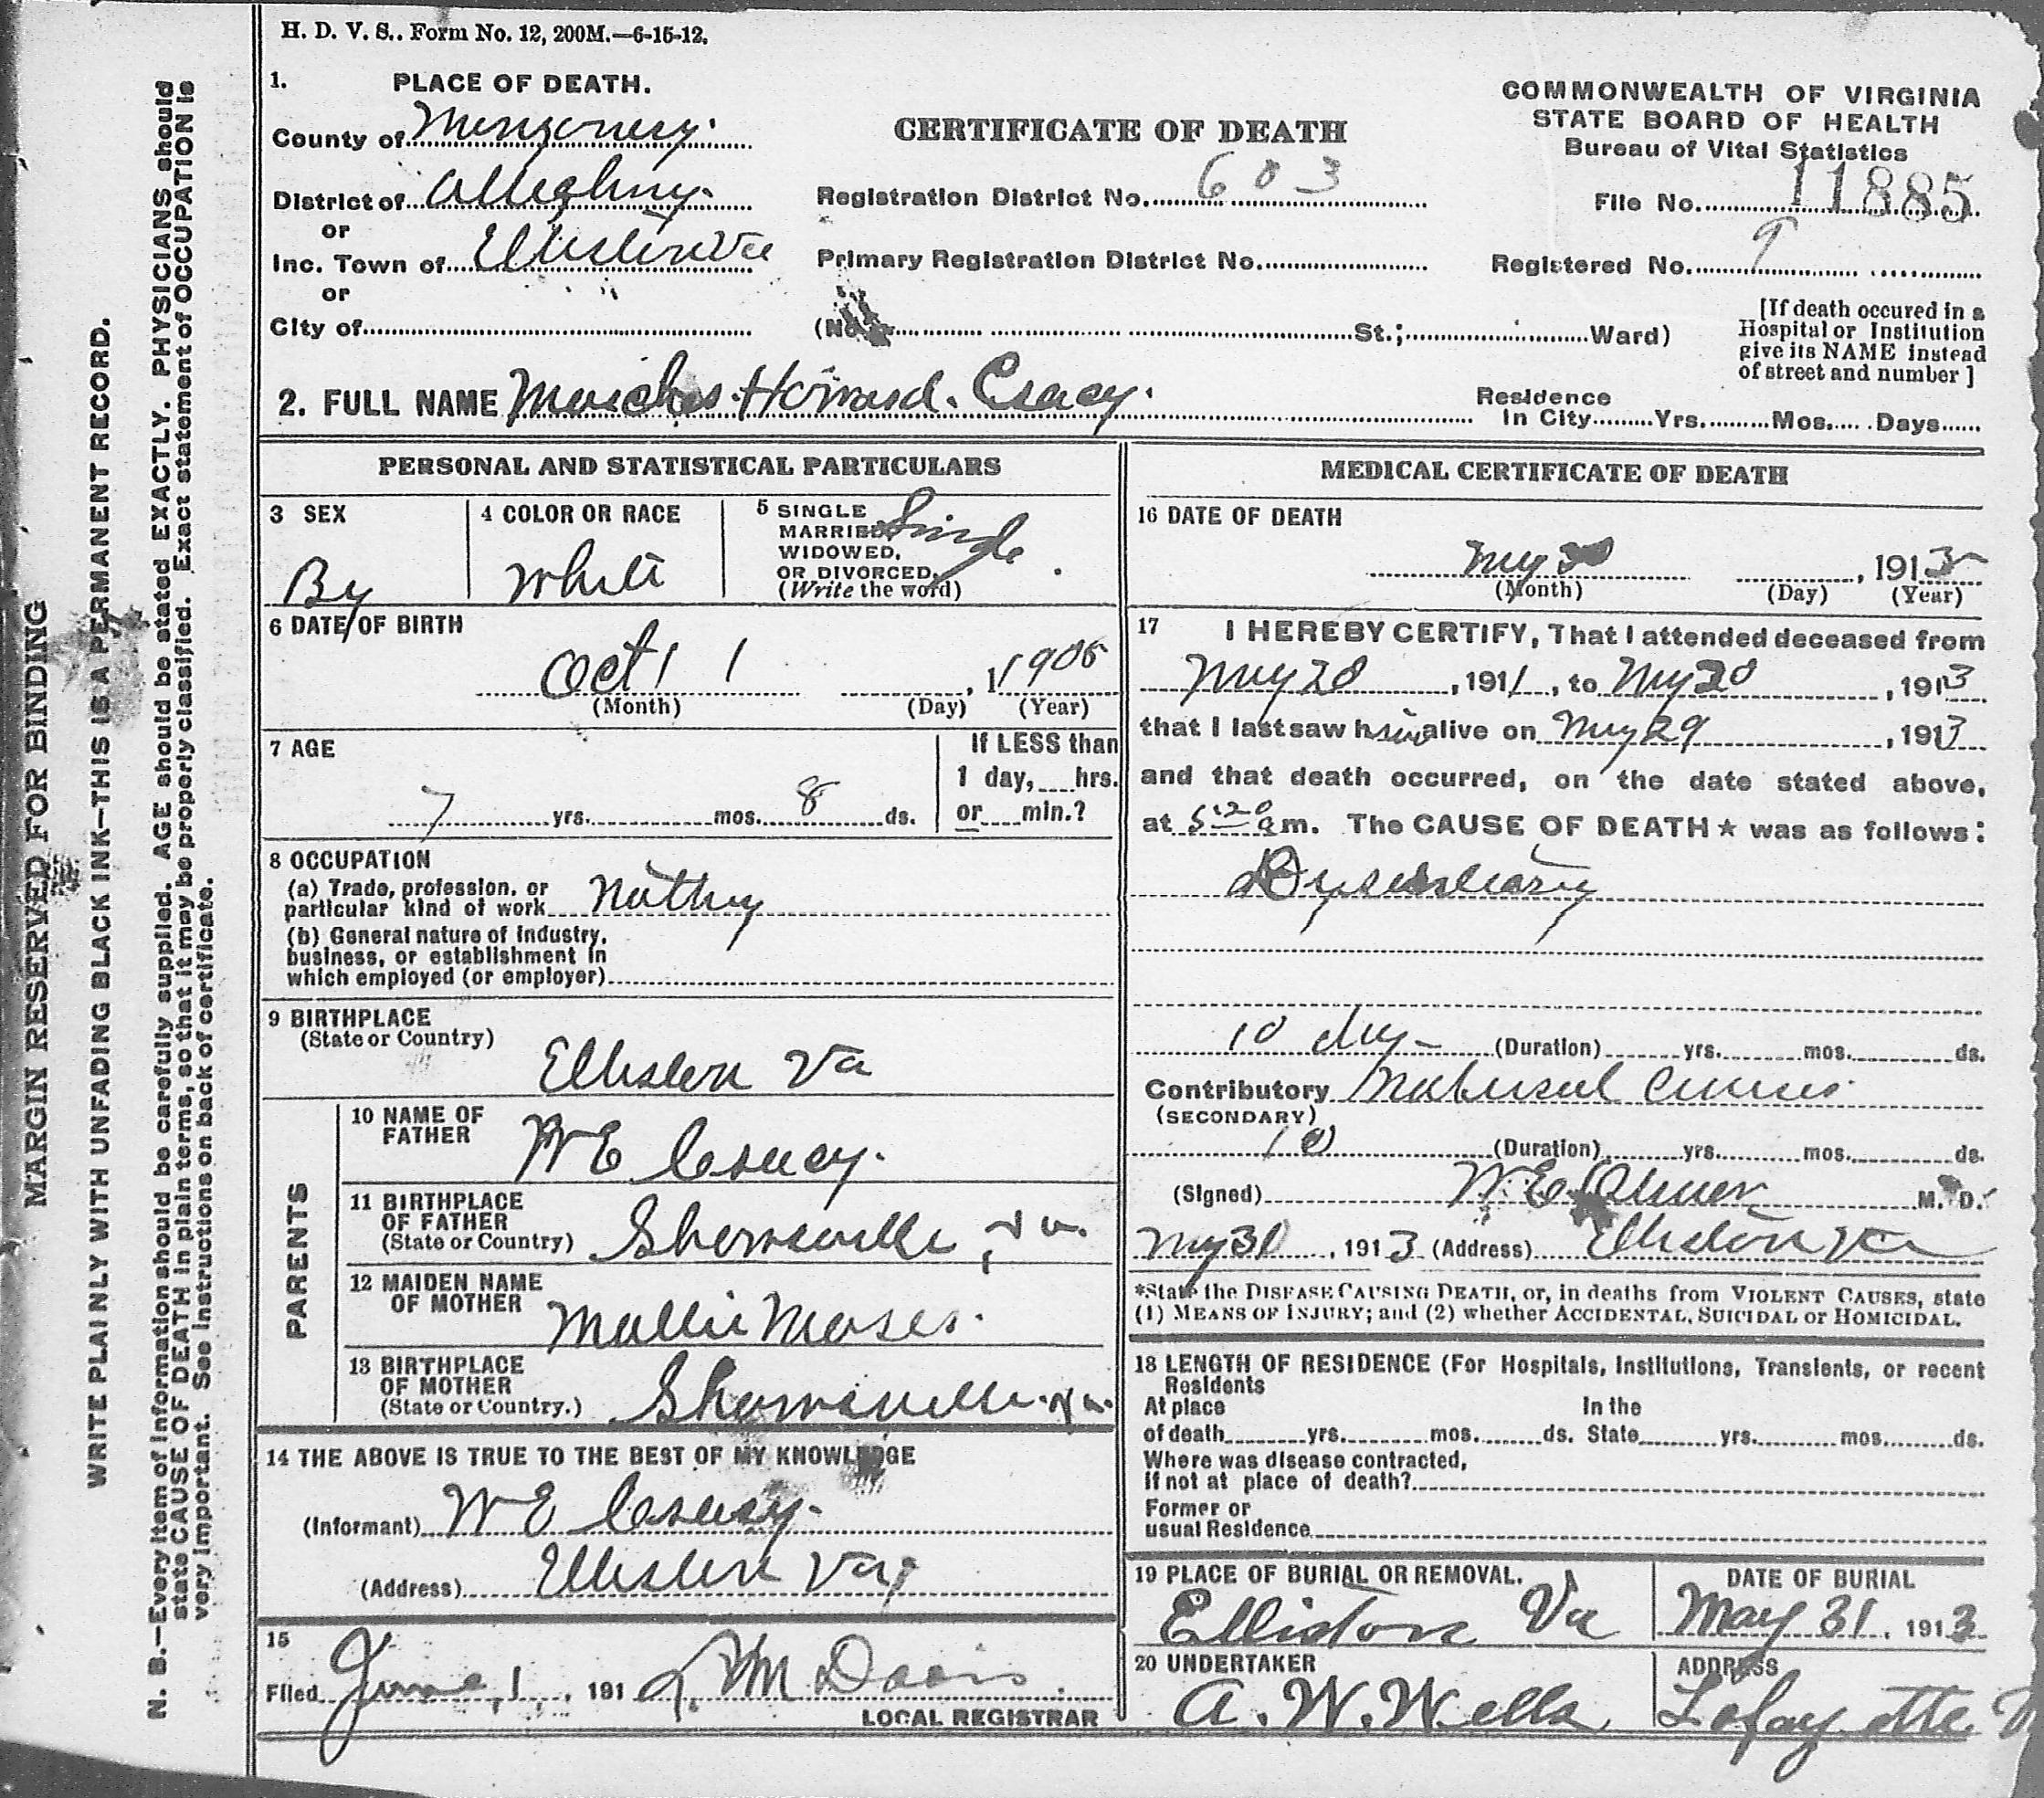 H. D. V. S.. Form No. 12, 200M.—6-15-12.
1. PLACE OF DEATH.
County of
District of Alleghny.
or
Inc. Town of Elliston Va
or
City of
CERTIFICATE OF DEATH
Registration District No. 603
Primary Registration District No.
(No. St.; Ward)
COMMONWEALTH OF VIRGINIA
STATE BOARD OF HEALTH
Bureau of Vital Statistics
File No. 11885
Registered No. 9
[If death occured in a
Hospital or Institution
give its NAME instead
of street and number ]
2. FULL NAME Howard.
Residence
In City Yrs. Mos. Days
PERSONAL AND STATISTICAL PARTICULARS
3 SEX
By
4 COLOR OR RACE
White
5 SINGLE
MARRIED
WIDOWED,
OR DIVORCED.
(Write the word)
Single
6 DATE OF BIRTH
Oct 1 1, 1905
(Month) (Day) (Year)
7 AGE
7 yrs. mos. 8 ds.
If LESS than
1 day, hrs.
or min.?
8 OCCUPATION
(a) Trade, profession, or
particular kind of work Nothy
(b) General nature of industry,
business, or establishment in
which employed (or employer)
9 BIRTHPLACE
(State or Country)
Elliston Va
PARENTS
10 NAME OF
FATHER
W E
11 BIRTHPLACE
OF FATHER
(State or Country) Va.
12 MAIDEN NAME
OF MOTHER
Mollie Moses.
13 BIRTHPLACE
OF MOTHER
(State or Country.) Va.
14 THE ABOVE IS TRUE TO THE BEST OF MY KNOWLEDGE
(Informant) W E
(Address) Elliston Va
15
Filed June, 1, 191 M Davis
LOCAL REGISTRAR
MEDICAL CERTIFICATE OF DEATH
16 DATE OF DEATH
My 30, 1913
(Month) (Day) (Year)
17 I HEREBY CERTIFY, That I attended deceased from
May 20, 1911, to My, 1913
that I last saw him alive on May 29, 1913
and that death occurred, on the date stated above,
at 5 20 am. The CAUSE OF DEATH ★ was as follows:
Dysenteary
10 dys (Duration) yrs. mos. ds.
Contributory Natural Causes
(SECONDARY)
10 (Duration) yrs. mos. ds.
(Signed) W. E. M. D.
My 30, 1913 (Address) Elliston Va
*State the DISEASE CAUSING DEATH, or, in deaths from VIOLENT CAUSES, state
(1) MEANS OF INJURY; and (2) whether ACCIDENTAL, SUICIDAL or HOMICIDAL.
18 LENGTH OF RESIDENCE (For Hospitals, Institutions, Transients, or recent
Residents
At place In the
of death yrs. mos. ds. State yrs. mos. ds.
Where was disease contracted,
if not at place of death?
Former or
usual Residence
19 PLACE OF BURIAL OR REMOVAL.
Elliston Va
DATE OF BURIAL
May 31, 1913
20 UNDERTAKER
A. W. Wells
ADDRESS
Lafayette
MARGIN RESERVED FOR BINDING
WRITE PLAINLY WITH UNFADING BLACK INK—THIS IS A PERMANENT RECORD.
N. B.—Every item of information should be carefully supplied. AGE should be stated EXACTLY. PHYSICIANS should
state CAUSE OF DEATH in plain terms, so that it may be properly classified. Exact statement of OCCUPATION is
very important. See instructions on back of certificate.